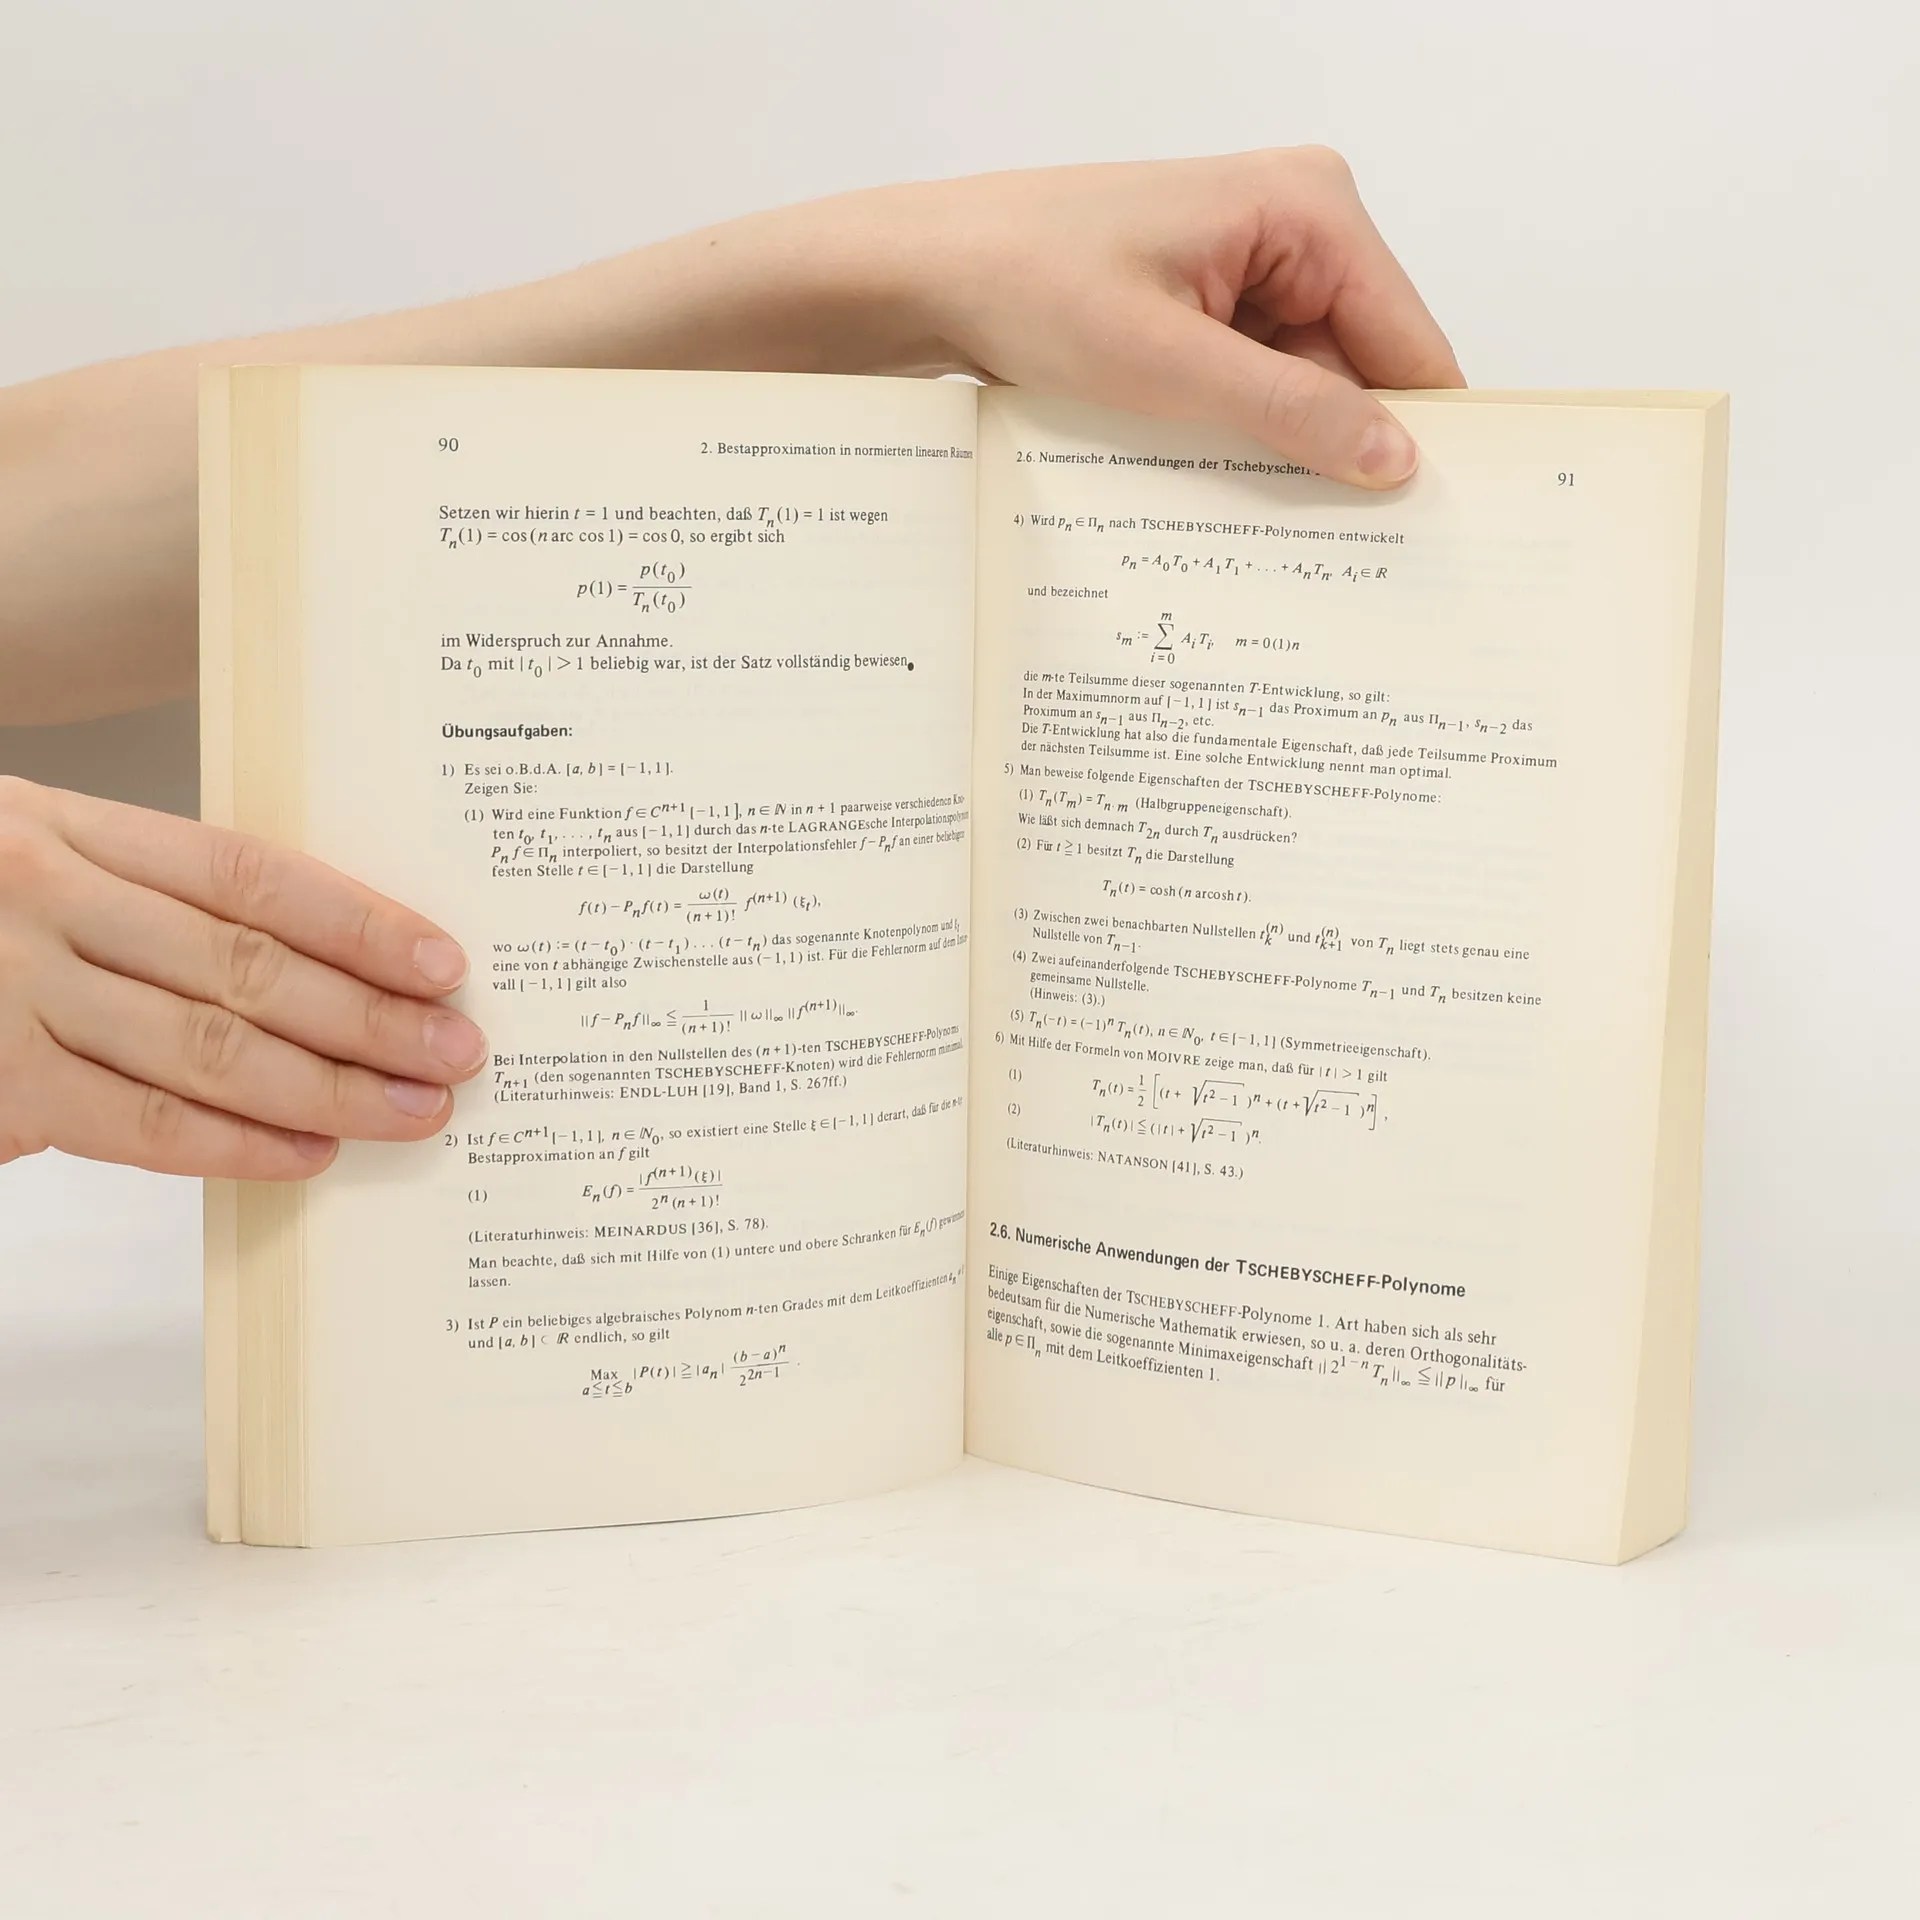 90
2. Bestapproximation in normierten linearen Räumen
Setzen wir hierin t = 1 und beachten, daß T_n(1) = 1 ist wegen
T_n(1) = cos (n arc cos 1) = cos 0, so ergibt sich
p(1) = p(t_0) / T_n(t_0)
im Widerspruch zur Annahme.
Da t_0 mit | t_0 | > 1 beliebig war, ist der Satz vollständig bewiesen.
Übungsaufgaben:
1) Es sei o.B.d.A. [a, b] = [−1, 1].
Zeigen Sie:
(1) Wird eine Funktion f ∈ C^{n+1} [−1, 1], n ∈ ℕ in n + 1 paarweise verschiedenen Kno-
ten t_0, t_1, . . . , t_n aus [−1, 1] durch das n-te LAGRANGEsche Interpolationspolynom
P_n f ∈ Π_n interpoliert, so besitzt der Interpolationsfehler f − P_n f an einer beliebigen
festen Stelle t ∈ [−1, 1] die Darstellung
f(t) − P_n f(t) = ω(t) / (n + 1)! f^{(n+1)} (ξ_t),
wo ω(t) := (t − t_0) · (t − t_1) . . . (t − t_n) das sogenannte Knotenpolynom und
eine von t abhängige Zwischenstelle aus (−1, 1) ist. Für die Fehlernorm auf dem Inter-
vall [−1, 1] gilt also
||f − P_n f||_∞ ≦ 1 / (n + 1)! ||ω||_∞ ||f^{(n+1)}||_∞.
Bei Interpolation in den Nullstellen des (n + 1)-ten TSCHEBYSCHEFF-Polynoms
T_{n+1} (den sogenannten TSCHEBYSCHEFF-Knoten) wird die Fehlernorm minimal.
(Literaturhinweis: ENDL-LUH [19], Band 1, S. 267ff.)
2) Ist f ∈ C^{n+1} [−1, 1], n ∈ ℕ_0, so existiert eine Stelle ξ ∈ [−1, 1] derart, daß für die n-te
Bestapproximation an f gilt
(1) E_n (f) = |f^{(n+1)}(ξ)| / 2^n (n + 1)!
(Literaturhinweis: MEINARDUS [36], S. 78).
Man beachte, daß sich mit Hilfe von (1) untere und obere Schranken für E_n(f) gewinnen
lassen.
3) Ist P ein beliebiges algebraisches Polynom n-ten Grades mit dem Leitkoeffizienten a_n
und [a, b] ⊂ ℝ endlich, so gilt
Max_{a≦t≦b} |P(t)| ≧ |a_n| (b − a)^n / 2^{2n−1} .
2.6. Numerische Anwendungen der
91
4) Wird p_n ∈ Π_n nach TSCHEBYSCHEFF-Polynomen entwickelt
p_n = A_0 T_0 + A_1 T_1 + . . . + A_n T_n, A_i ∈ ℝ
und bezeichnet
s_m := ∑_{i=0}^{m} A_i T_i, m = 0(1)n
die m-te Teilsumme dieser sogenannten T-Entwicklung, so gilt:
In der Maximumnorm auf [−1, 1] ist s_{n−1} das Proximum an p_n aus Π_{n−1}, s_{n−2} das
Proximum an s_{n−1} aus Π_{n−2}, etc.
Die T-Entwicklung hat also die fundamentale Eigenschaft, daß jede Teilsumme Proximum
der nächsten Teilsumme ist. Eine solche Entwicklung nennt man optimal.
5) Man beweise folgende Eigenschaften der TSCHEBYSCHEFF-Polynome:
(1) T_n(T_m) = T_{n·m} (Halbgruppeneigenschaft).
Wie läßt sich demnach T_{2n} durch T_n ausdrücken?
(2) Für t ≧ 1 besitzt T_n die Darstellung
T_n(t) = cosh (n arcosh t).
(3) Zwischen zwei benachbarten Nullstellen t_k^{(n)} und t_{k+1}^{(n)} von T_n liegt stets genau eine
Nullstelle von T_{n−1}.
(4) Zwei aufeinanderfolgende TSCHEBYSCHEFF-Polynome T_{n−1} und T_n besitzen keine
gemeinsame Nullstelle.
(Hinweis: (3).)
(5) T_n(−t) = (−1)^n T_n(t), n ∈ ℕ_0, t ∈ [−1, 1] (Symmetrieeigenschaft).
6) Mit Hilfe der Formeln von MOIVRE zeige man, daß für | t | > 1 gilt
(1) T_n(t) = 1/2 [(t + √(t^2 − 1))^n + (t + √(t^2 − 1))^n] ,
(2) |T_n(t)| ≦ (|t| + √(t^2 − 1))^n.
(Literaturhinweis: NATANSON [41], S. 43.)
2.6. Numerische Anwendungen der TSCHEBYSCHEFF-Polynome
Einige Eigenschaften der TSCHEBYSCHEFF-Polynome 1. Art haben sich als sehr
bedeutsam für die Numerische Mathematik erwiesen, so u. a. deren Orthogonalitäts-
eigenschaft, sowie die sogenannte Minimaxeigenschaft || 2^{1−n} T_n ||_∞ ≦ || p ||_∞ für
alle p ∈ Π_n mit dem Leitkoeffizienten 1.